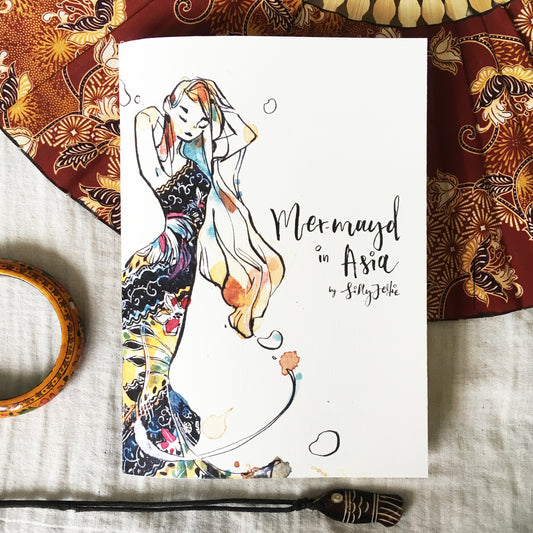 Mermayd
in Asia
by Silly Jellie